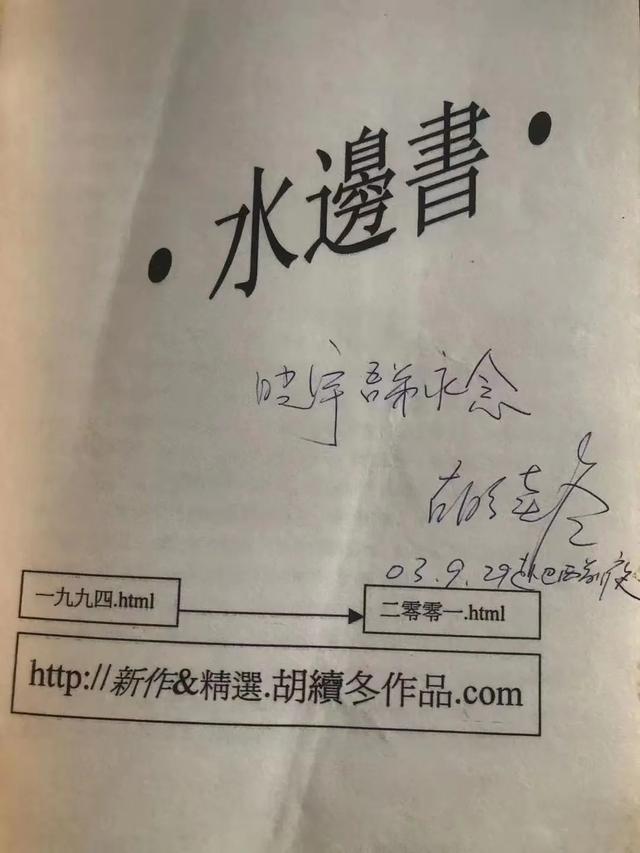 •水邊書•
晓宇吾弟永念
胡续冬
03.9.29赴巴西前夜
一九九四.html
二零零一.html
http://新作&精選.胡續冬作品.com